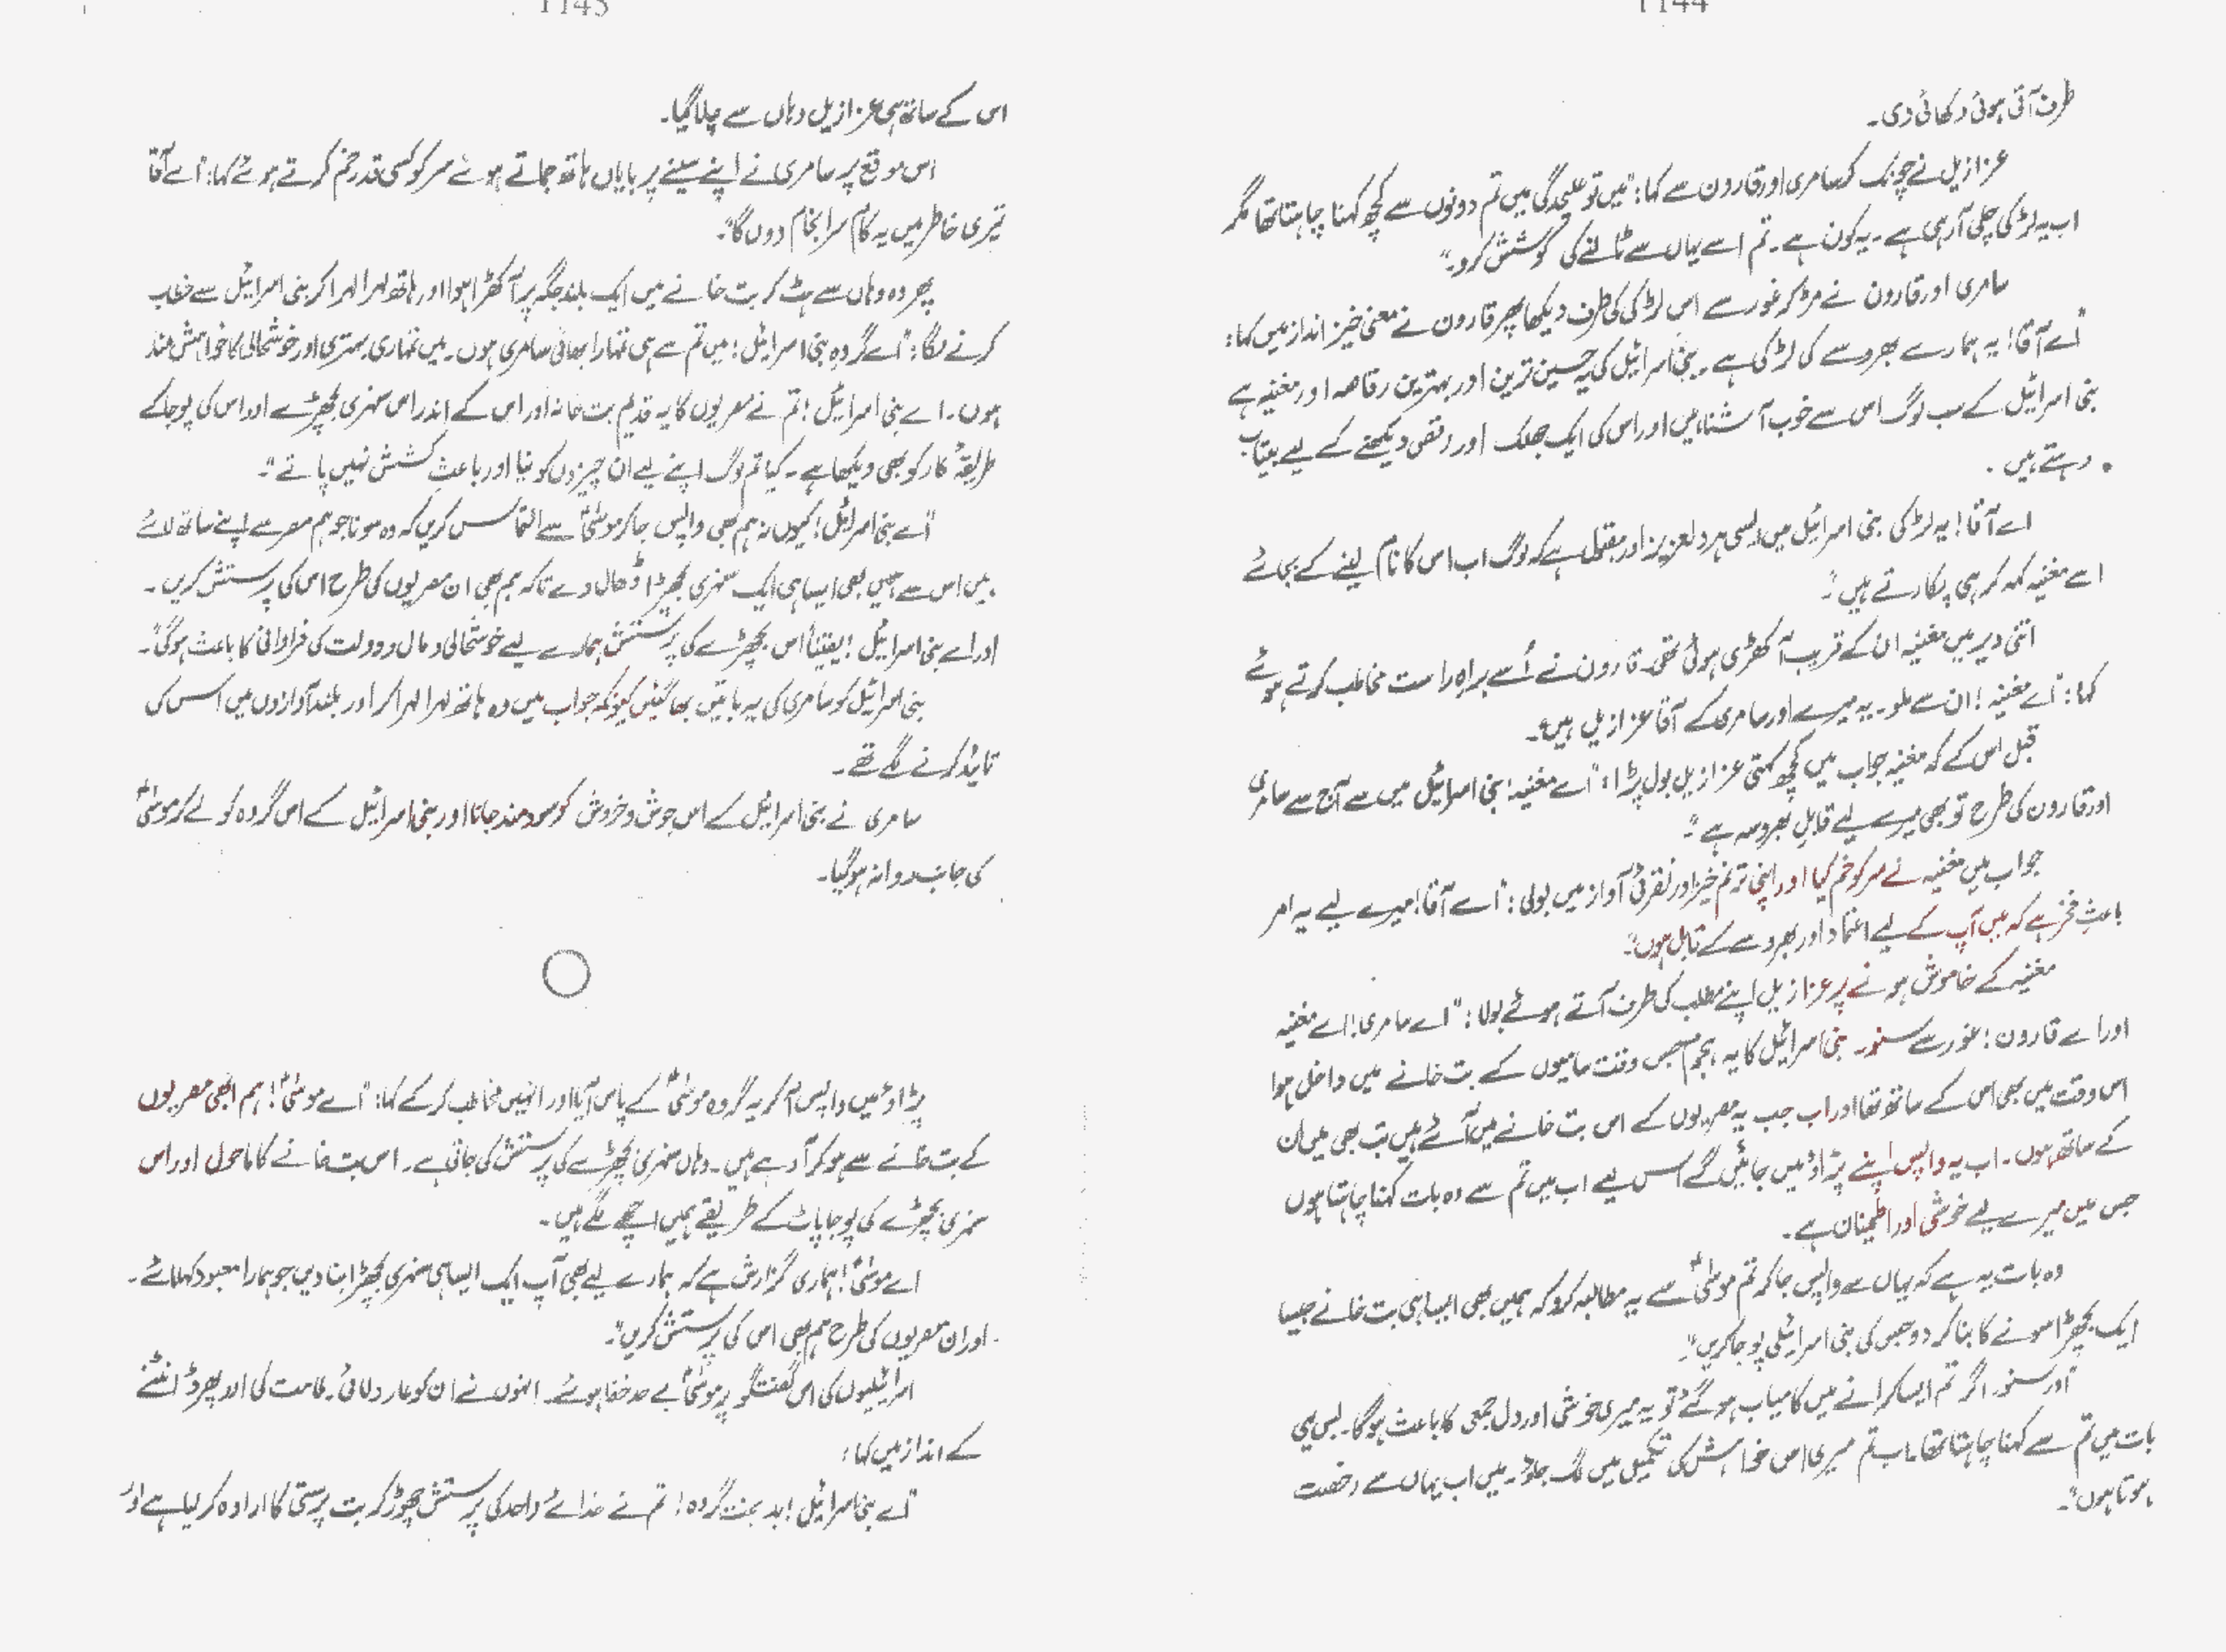 1144
طرف آتی ہوئی دکھائی دی۔
عزازیل نے چونک کر سامری اور قارون سے کہا: "میں تو علیحدگی میں تم دونوں سے کچھ کہنا چاہتا تھا مگر
اب یہ لڑکی چلی آ رہی ہے۔ یہ کون ہے۔ تم اسے یہاں سے ٹالنے کی کوشش کرو۔"
سامری اور قارون نے مڑ کر غور سے اس لڑکی کی طرف دیکھا پھر قارون نے معنی خیز انداز میں کہا:
"اے آقا! یہ ہمارے بھروسے کی لڑکی ہے۔ بنی اسرائیل کی یہ حسین ترین اور بہترین رقاصہ اور مغنیہ ہے
بنی اسرائیل کے سب لوگ اس سے خوب آشنا ہیں اور اس کی ایک جھلک اور رقص دیکھنے کے لیے بیتاب
رہتے ہیں۔
اے آقا! یہ لڑکی بنی اسرائیل میں ایسی ہر دلعزیز اور مقبول ہے کہ لوگ اب اس کا نام لینے کے بجائے
اسے مغنیہ کہہ کر ہی پکارتے ہیں"۔
اتنی دیر میں مغنیہ ان کے قریب آ کھڑی ہوئی تھی۔ قارون نے اُسے براہِ راست مخاطب کرتے ہوئے
کہا: "اے مغنیہ! ان سے ملو۔ یہ میرے اور سامری کے آقا عزازیل ہیں"۔
قبل اس کے کہ مغنیہ جواب میں کچھ کہتی عزازیل بول پڑا: "اے مغنیہ! بنی اسرائیل میں سے آج سے سامری
اور قارون کی طرح تو بھی میرے لیے قابلِ بھروسہ ہے"۔
جواب میں مغنیہ نے سر کو خم کیا اور اپنی ترنم خیز اور نقرئی آواز میں بولی: "اے آقا! میرے لیے یہ امر
باعثِ فخر ہے کہ میں آپ کے لیے اعتماد اور بھروسے کے قابل ہوں"۔
مغنیہ کے خاموش ہونے پر عزازیل اپنے مطلب کی طرف آتے ہوئے بولا: "اے سامری! اے مغنیہ
اور اے قارون! غور سے سنو۔ بنی اسرائیل کا یہ ہجوم جس وقت سامیوں کے بت خانے میں داخل ہوا
اس وقت میں بھی اس کے ساتھ تھا اور اب جب یہ مصریوں کے اس بت خانے میں آئے ہیں تب بھی میں ان
کے ساتھ ہوں۔ اب یہ واپس اپنے پڑاؤ میں جائیں گے اس لیے اب میں تم سے وہ بات کہنا چاہتا ہوں
جس میں میرے لیے خوشی اور اطمینان ہے۔
وہ بات یہ ہے کہ یہاں سے واپس جا کر تم موسیٰؑ سے یہ مطالبہ کرو کہ ہمیں بھی ایسا ہی بت خانے جیسا
ایک بچھڑا سونے کا بنا کر دو جس کی بنی اسرائیلی پوجا کریں"۔
"اور سنو۔ اگر تم ایسا کرانے میں کامیاب ہو گئے تو یہ میری خوشی اور دل جمعی کا باعث ہوگا۔ بس یہی
بات میں تم سے کہنا چاہتا تھا۔ اب تم میری اس خواہش کی تکمیل میں لگ جاؤ۔ میں اب یہاں سے رخصت
ہوتا ہوں"۔
1145
اس کے ساتھ ہی عزازیل وہاں سے چلا گیا۔
اس موقع پر سامری نے اپنے سینے پر بایاں ہاتھ جماتے ہوئے سر کو کسی قدر خم کرتے ہوئے کہا: "اے آقا
تیری خاطر میں یہ کام سرانجام دوں گا"۔
پھر وہ وہاں سے ہٹ کر بت خانے میں ایک بلند جگہ پر آ کھڑا ہوا اور ہاتھ لہرا لہرا کر بنی اسرائیل سے خطاب
کرنے لگا: "اے گروہِ بنی اسرائیل! میں تم سے ہی تمہارا بھائی سامری ہوں۔ میں تمہاری بہتری اور خوشحالی کا خواہش مند
ہوں۔ اے بنی اسرائیل! تم نے مصریوں کا یہ قدیم بت خانہ اور اس کے اندر اس سنہری بچھڑے اور اس کی پوجا کے
طریقۂ کار کو بھی دیکھا ہے۔ کیا تم لوگ اپنے لیے ان چیزوں کو نیا اور باعثِ کشش نہیں پاتے"۔
"اے بنی اسرائیل! کیوں نہ ہم بھی واپس جا کر موسیٰؑ سے التماس کریں کہ وہ سونا جو ہم مصر سے اپنے ساتھ لائے
ہیں اس سے ہمیں بھی ایسا ہی ایک سنہری بچھڑا ڈھال دے تاکہ ہم بھی ان مصریوں کی طرح اس کی پرستش کریں۔
اور اے بنی اسرائیل! یقیناً اس بچھڑے کی پرستش ہمارے لیے خوشحالی و مال و دولت کی فراوانی کا باعث ہوگی"۔
بنی اسرائیل کو سامری کی یہ باتیں بھا گئیں کیونکہ جواب میں وہ ہاتھ لہرا لہرا کر اور بلند آوازوں میں اس کی
تائید کرنے لگے تھے۔
سامری نے بنی اسرائیل کے اس جوش و خروش کو سود مند جانا اور بنی اسرائیل کے اس گروہ کو لے کر موسیٰؑ
کی جانب روانہ ہو گیا۔
پڑاؤ میں واپس آ کر یہ گروہ موسیٰؑ کے پاس آیا اور انہیں مخاطب کر کے کہا: "اے موسیٰؑ! ہم ابھی مصریوں
کے بت خانے سے ہو کر آ رہے ہیں۔ وہاں سنہری بچھڑے کی پرستش کی جاتی ہے۔ اس بت خانے کا ماحول اور اس
سنہری بچھڑے کی پوجا پاٹ کے طریقے ہمیں اچھے لگے ہیں۔
اے موسیٰؑ! ہماری گزارش ہے کہ ہمارے لیے بھی آپ ایک ایسا ہی سنہری بچھڑا بنا دیں جو ہمارا معبود کہلائے۔
اور ان مصریوں کی طرح ہم بھی اس کی پرستش کریں"۔
اسرائیلیوں کی اس گفتگو پر موسیٰؑ بے حد خفا ہوئے۔ انہوں نے ان کو عار دلائی۔ ملامت کی اور پھر ڈانٹنے
کے انداز میں کہا:
"اے بنی اسرائیل! بد بخت گروہ! تم نے خدائے واحد کی پرستش چھوڑ کر بت پرستی کا ارادہ کر لیا ہے اور